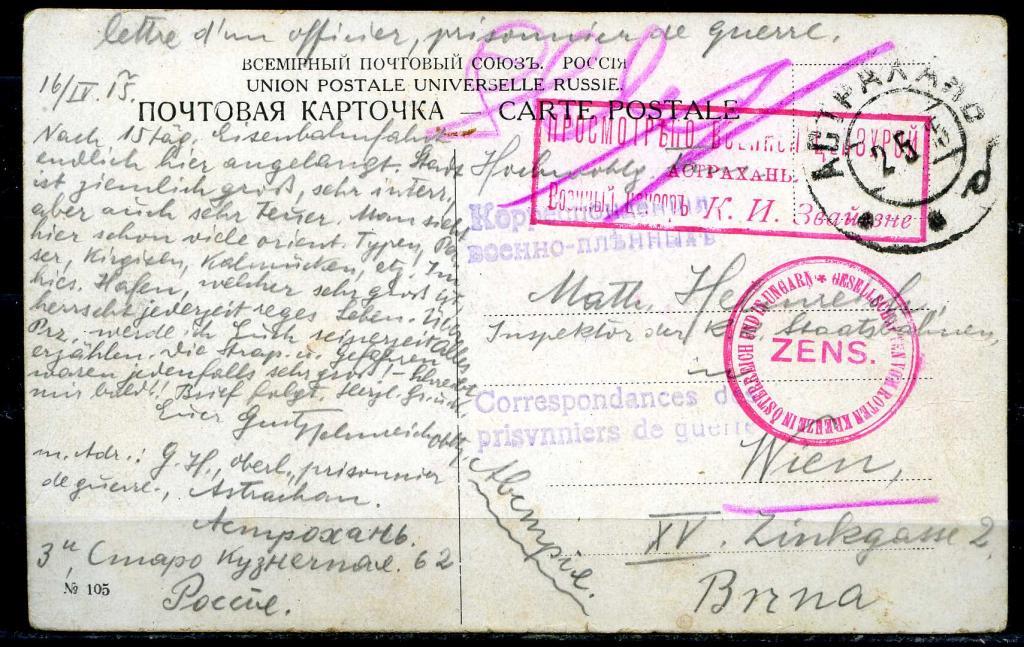 lettre d'un officier, prisonnier de guerre.
ВСЕМІРНЫЙ ПОЧТОВЫЙ СОЮЗЪ. РОССІЯ
UNION POSTALE UNIVERSELLE RUSSIE.
ПОЧТОВАЯ КАРТОЧКА — CARTE POSTALE
16/IV. 15.
Nach 15täg. Eisenbahnfahrt
endlich hier angelangt. Stadt
ist ziemlich groß sehr inter.,
aber auch sehr teuer. Man sieht
hier schon viele orient. Typen, Per
ser, Kirgisen, Kalmücken, etc. Im
hies. Hafen, welcher sehr groß ist
herrscht jederzeit reges Leben. Über
Prz. werde ich Euch seinerzeit Alles
erzählen. Die Strap. u. Gefahren
waren jedenfalls sehr groß! – Schreibet
mir bald! Brief folgt. Herzl. Grüße
Euer
m. Adr.: G. H., Oberl., prisonnier
de guerre, Astrachan.
Астрохань.
3я Старо Кузнечная. 62
Россія.
№ 105
ПРОСМОТРѢНО ВОЕННОЙ ЦЕНЗУРОЙ
АСТРАХАНЬ.
Военный Цензоръ К. И. Звайгзне
АСТРАХАНЬ
2 5 15
Hochwohlg.
Корреспонденція
военно-плѣнныхъ
Math. Helmreich,
Inspektor der k.k. Staatsbahnen,
in
GESELLSCHAFTEN VOM ROTEN KREUZE IN ÖSTERREICH UND IN UNGARN
ZENS.
Correspondances d
prisvnniers de guerre
Wien,
XV. Zinkgasse 2.
Австрія.
Вѣна